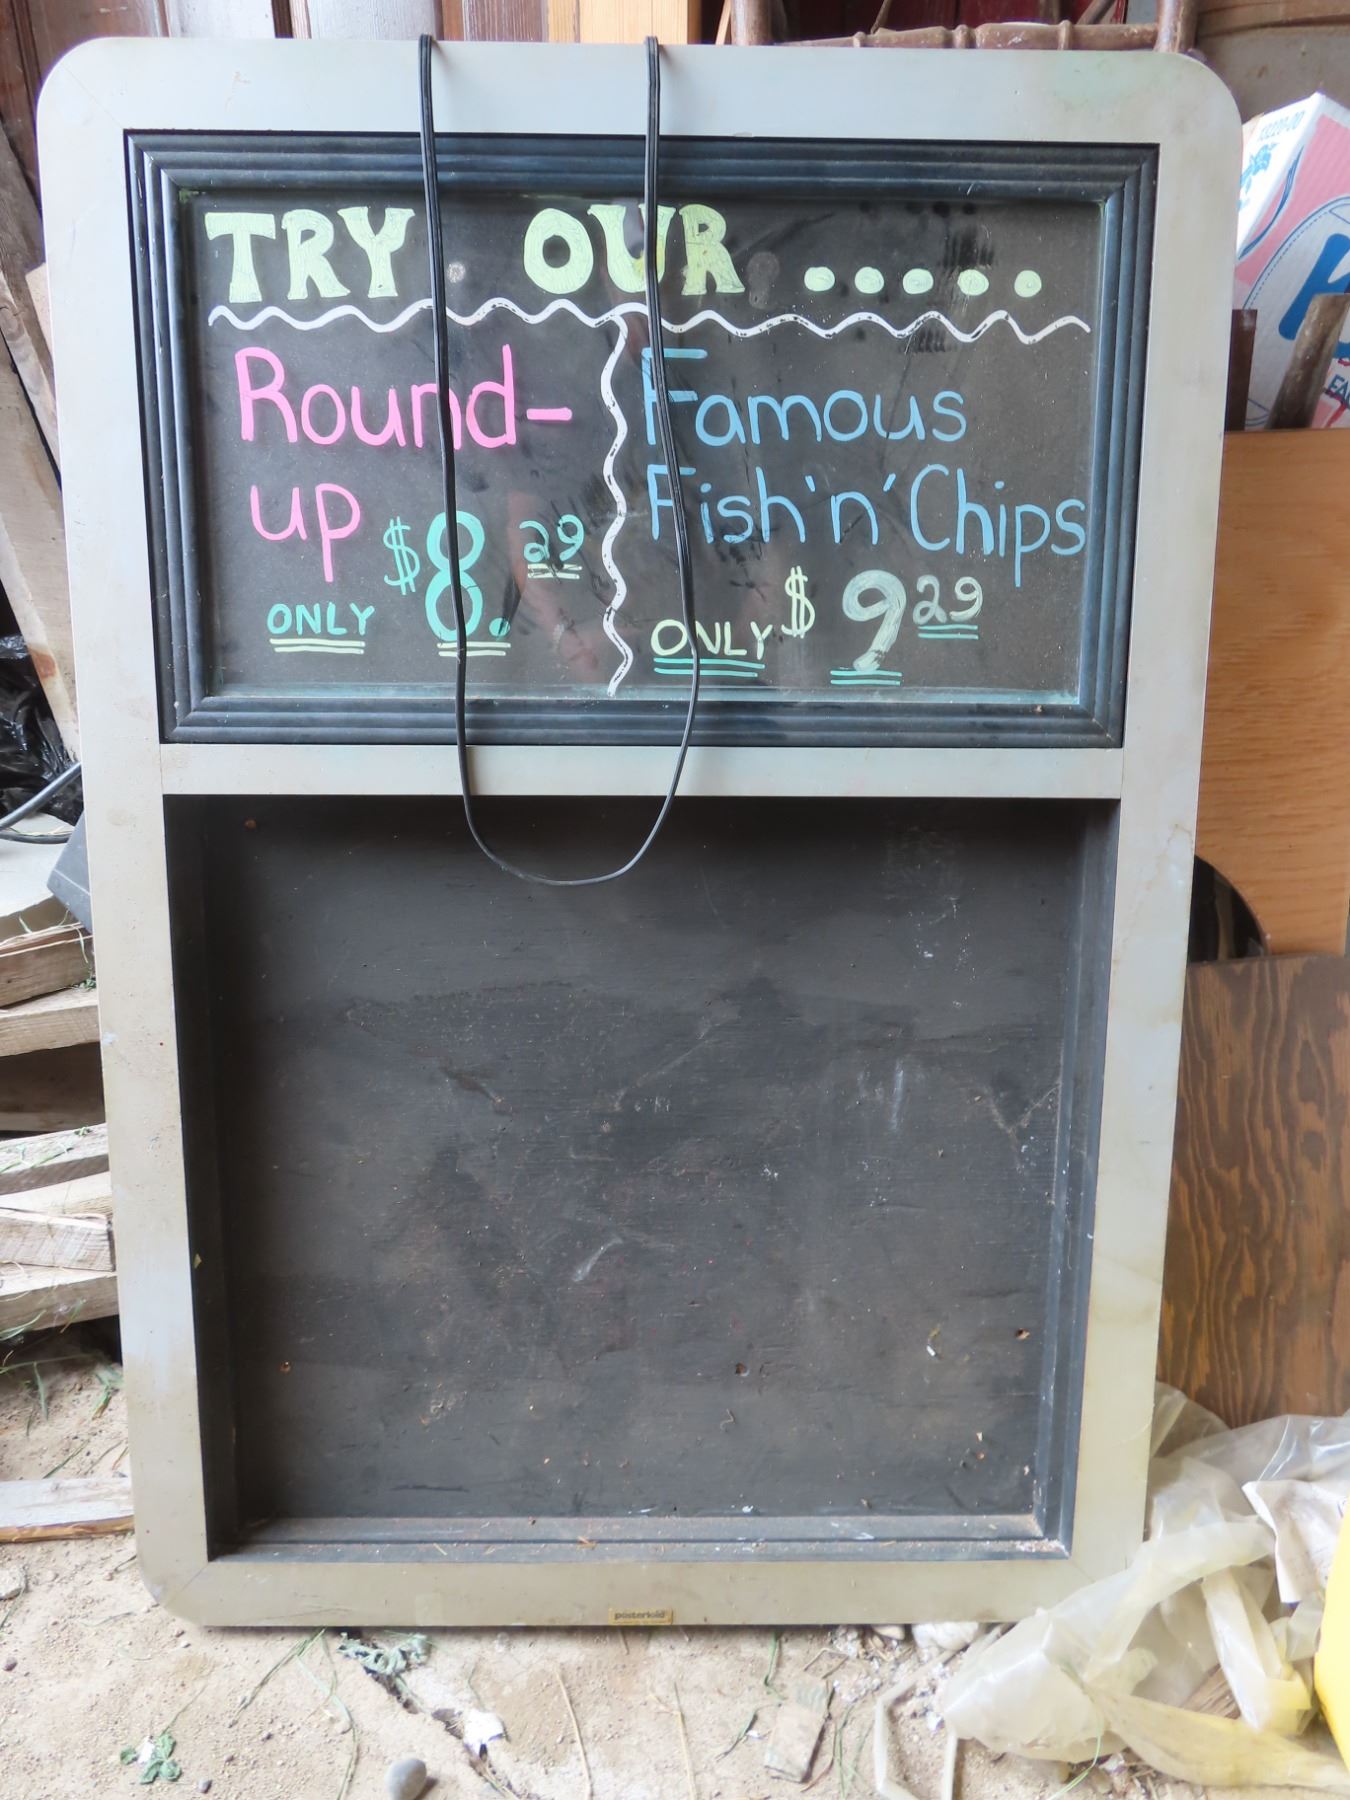 TRY OUR .....
Round-
up
ONLY $8.29
Famous
Fish'n'Chips
ONLY $929
posterloid